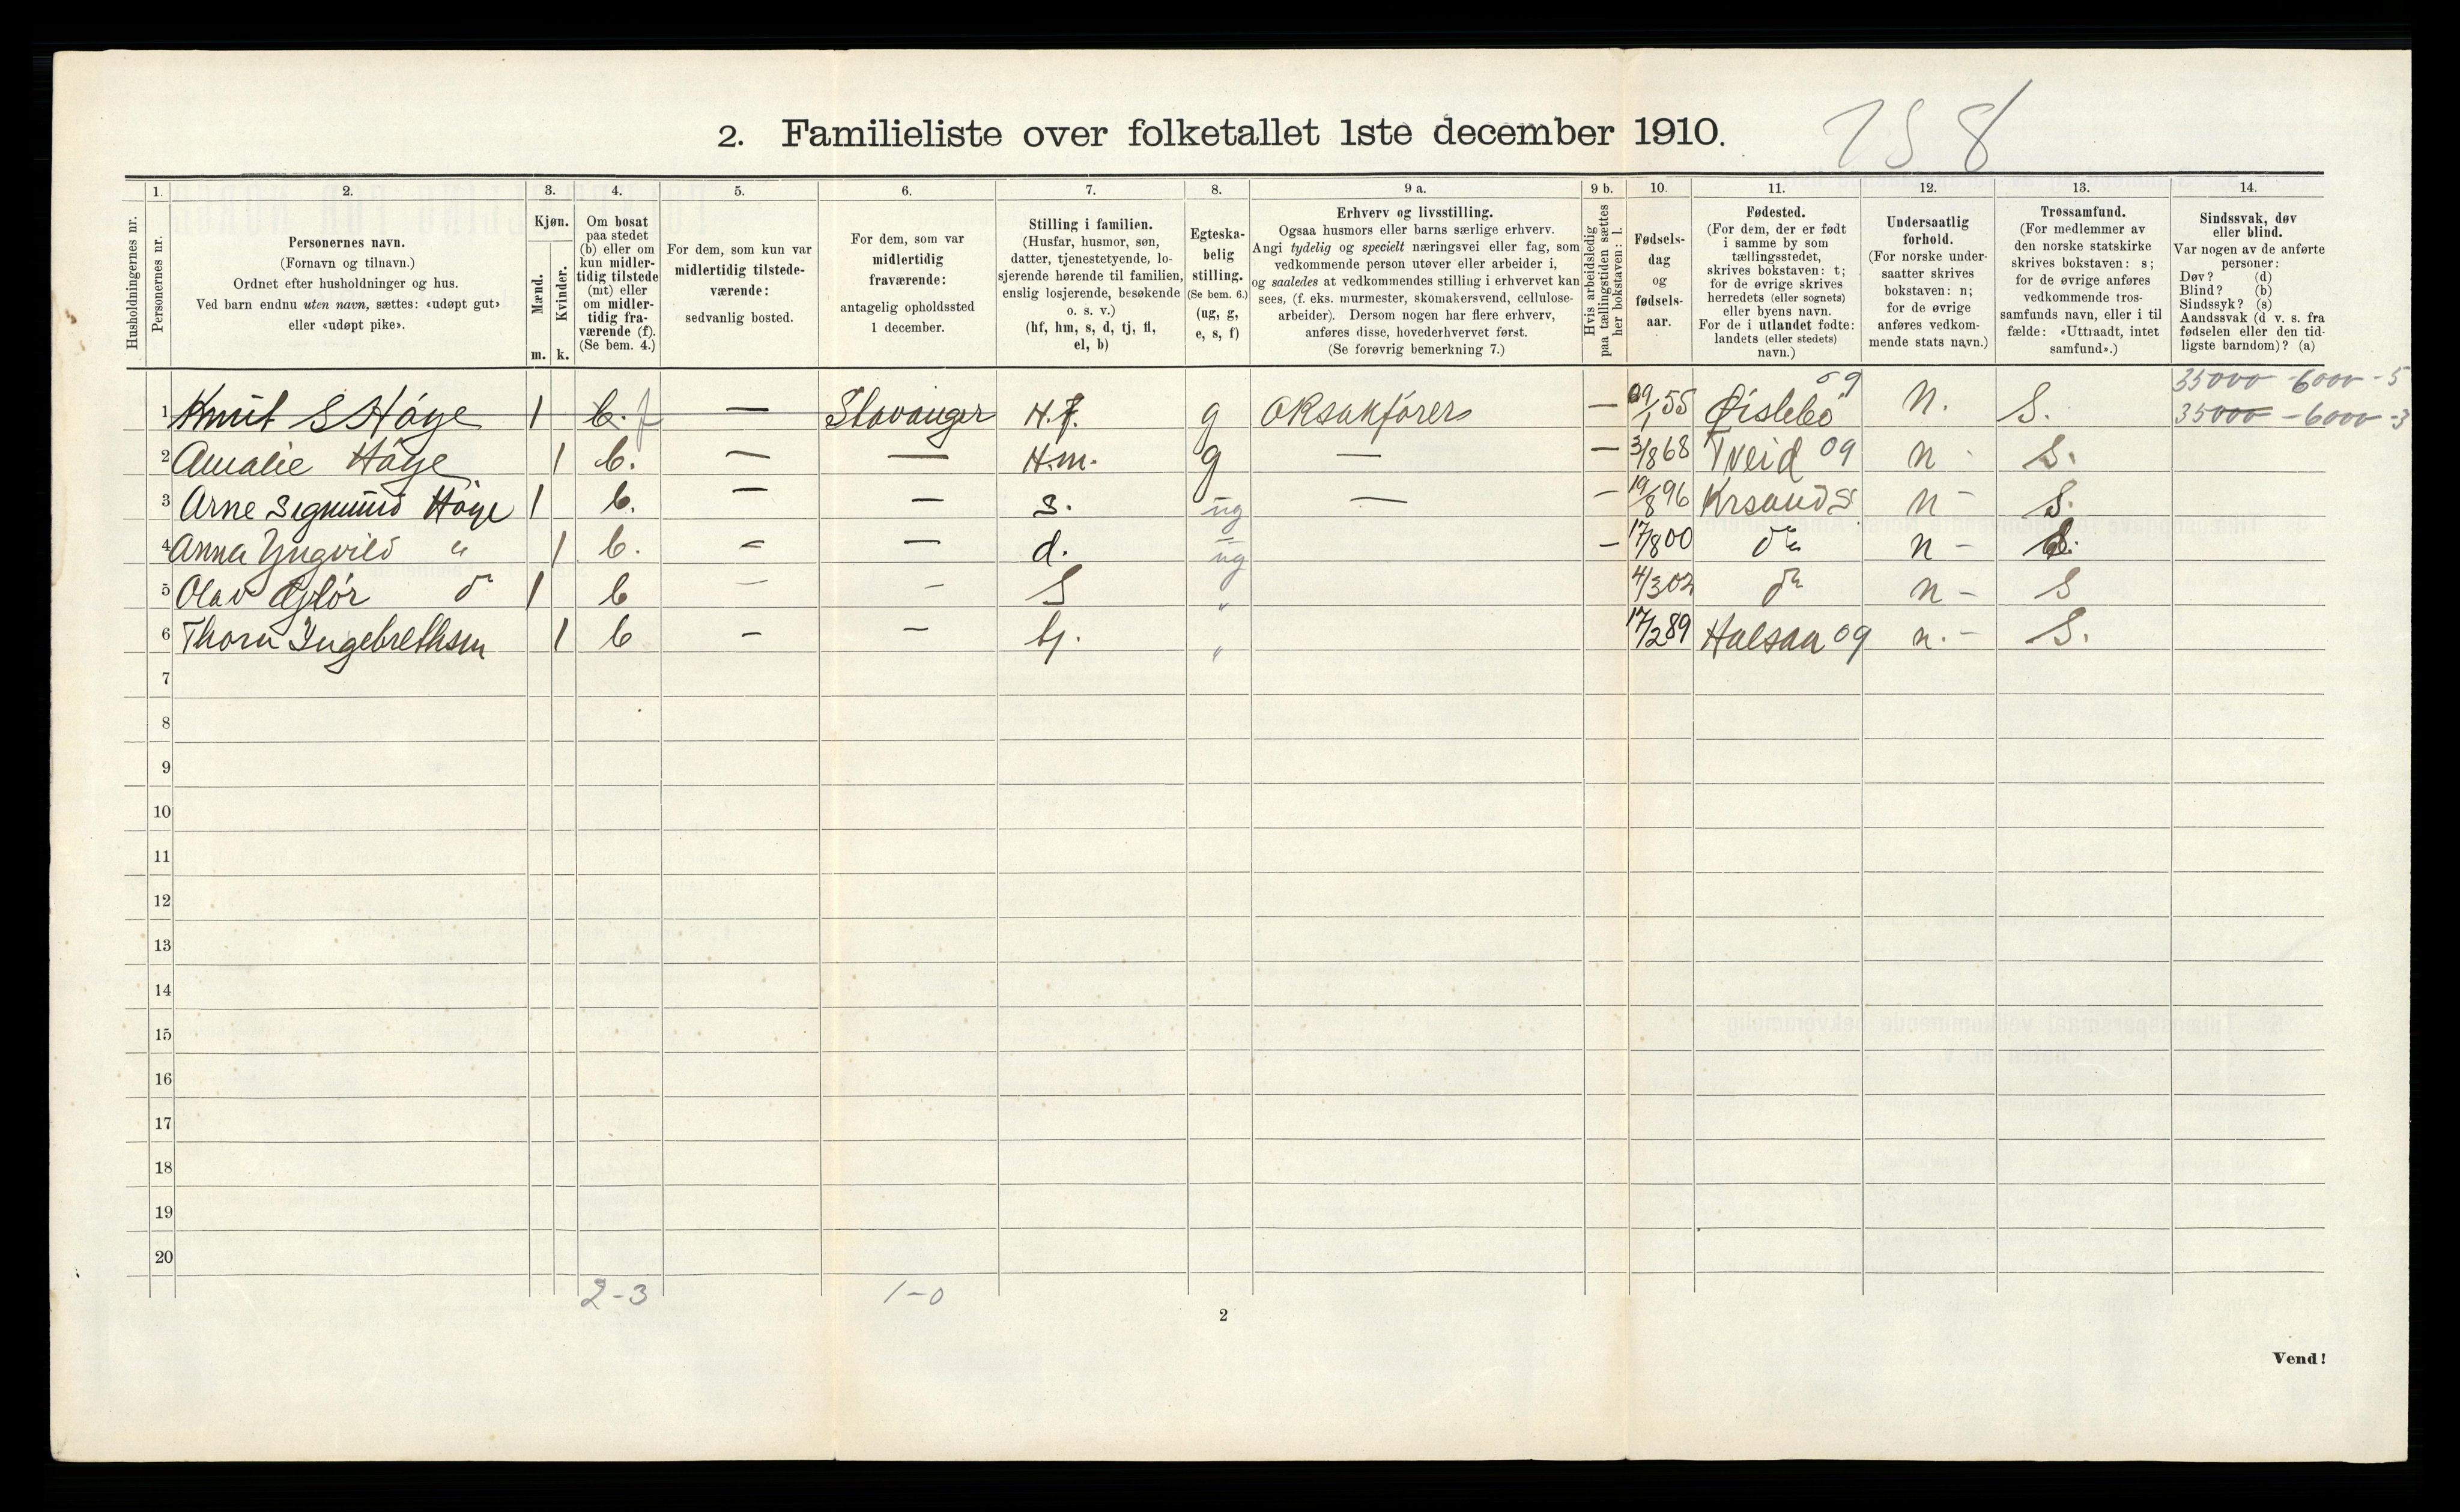 158
2. Familieliste over folketallet 1ste december 1910.
1. 2. 3. 4. 5. 6. 7. 8. 9 a. 9 b. 10. 11. 12. 13. 14.
Husholdningernes nr.
Personernes nr.
Personernes navn.
(Fornavn og tilnavn.)
Ordnet efter husholdninger og hus.
Ved barn endnu uten navn, sættes: «udøpt gut»
eller «udøpt pike».
Kjøn.
Mænd.
Kvinder.
m. k.
Om bosat
paa stedet
(b) eller om
kun midler-
tidig tilstede
(mt) eller
om midler-
tidig fra-
værende (f).
(Se bem. 4.)
For dem, som kun var
midlertidig tilstede-
værende:
sedvanlig bosted.
For dem, som var
midlertidig
fraværende:
antagelig opholdssted
1 december.
Stilling i familien.
(Husfar, husmor, søn,
datter, tjenestetyende, lo-
sjerende hørende til familien,
enslig losjerende, besøkende
o. s. v.)
(hf, hm, s, d, tj, fl,
el, b)
Egteska-
belig
stilling.
(Se bem. 6.)
(ug, g,
e, s, f)
Erhverv og livsstilling.
Ogsaa husmors eller barns særlige erhverv.
Angi tydelig og specielt næringsvei eller fag, som
vedkommende person utøver eller arbeider i,
og saaledes at vedkommendes stilling i erhvervet kan
sees, (f. eks. murmester, skomakersvend, cellulose-
arbeider). Dersom nogen har flere erhverv,
anføres disse, hovederhvervet først.
(Se forøvrig bemerkning 7.)
Hvis arbeidsledig
paa tællingstiden sættes
her bokstaven: l.
Fødsels-
dag
og
fødsels-
aar.
Fødested.
(For dem, der er født
i samme by som
tællingsstedet,
skrives bokstaven: t;
for de øvrige skrives
herredets (eller sognets)
eller byens navn.
For de i utlandet fødte:
landets (eller stedets)
navn.)
Undersaatlig
forhold.
(For norske under-
saatter skrives
bokstaven: n;
for de øvrige
anføres vedkom-
mende stats navn.)
Trossamfund.
(For medlemmer av
den norske statskirke
skrives bokstaven: s;
for de øvrige anføres
vedkommende tros-
samfunds navn, eller i til
fælde: «Uttraadt, intet
samfund».)
Sindssvak, døv
eller blind.
Var nogen av de anførte
personer:
Døv? (d)
Blind? (b)
Sindssyk? (s)
Aandssvak (d v. s. fra
fødselen eller den tid-
ligste barndom)? (a)
35000 - 6000 - 5
1 Knut S Høye 1 b. f — Stavanger H.f. g OKsakfører — 09/1 55 Øislebø 09 n. S. 35000 - 6000 - 3
2 Amalie Høye 1 b. — — H.m. g — — 3/8 68 Tveid 09 n - S.
3 Arne Sigmund Høye 1 b. — — s. ug — - 19/8 96 Krsand S n - S.
4 Anna Yngvild " 1 b. - — d. ug - 17/8 00 do n - S.
5 Olav do 1 b — - S " 4/3 02 do n - S
6 Thora Ingebrethsen 1 b - — tj. " 17/2 89 Halsaa 09 n. - S.
7
8
9
10
11
12
13
14
15
16
17
18
19
20
2-3 1-0
2
Vend!